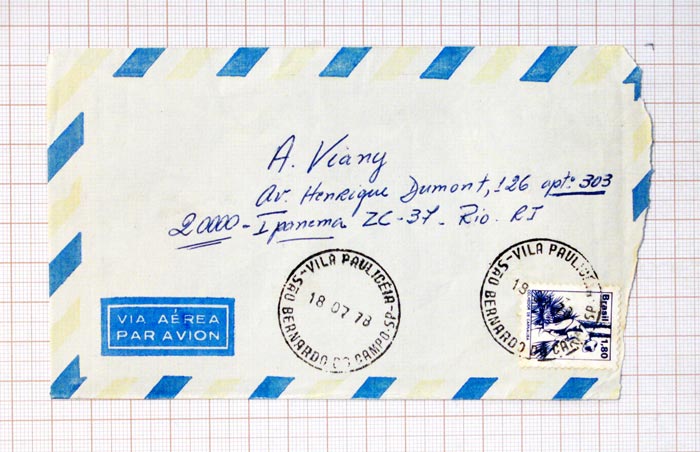 A. Viany
Av. Henrique Dumont, 126 aptº 303
20000 - Ipanema ZC-37 - Rio. RJ
SÃO BERNARDO DO CAMPO-SP - VILA PAULICÉIA
18 07 78
SÃO BERNARDO DO CAMPO-SP - VILA PAULICÉIA
18
Brasil
1,80
VIA AÉREA
PAR AVION